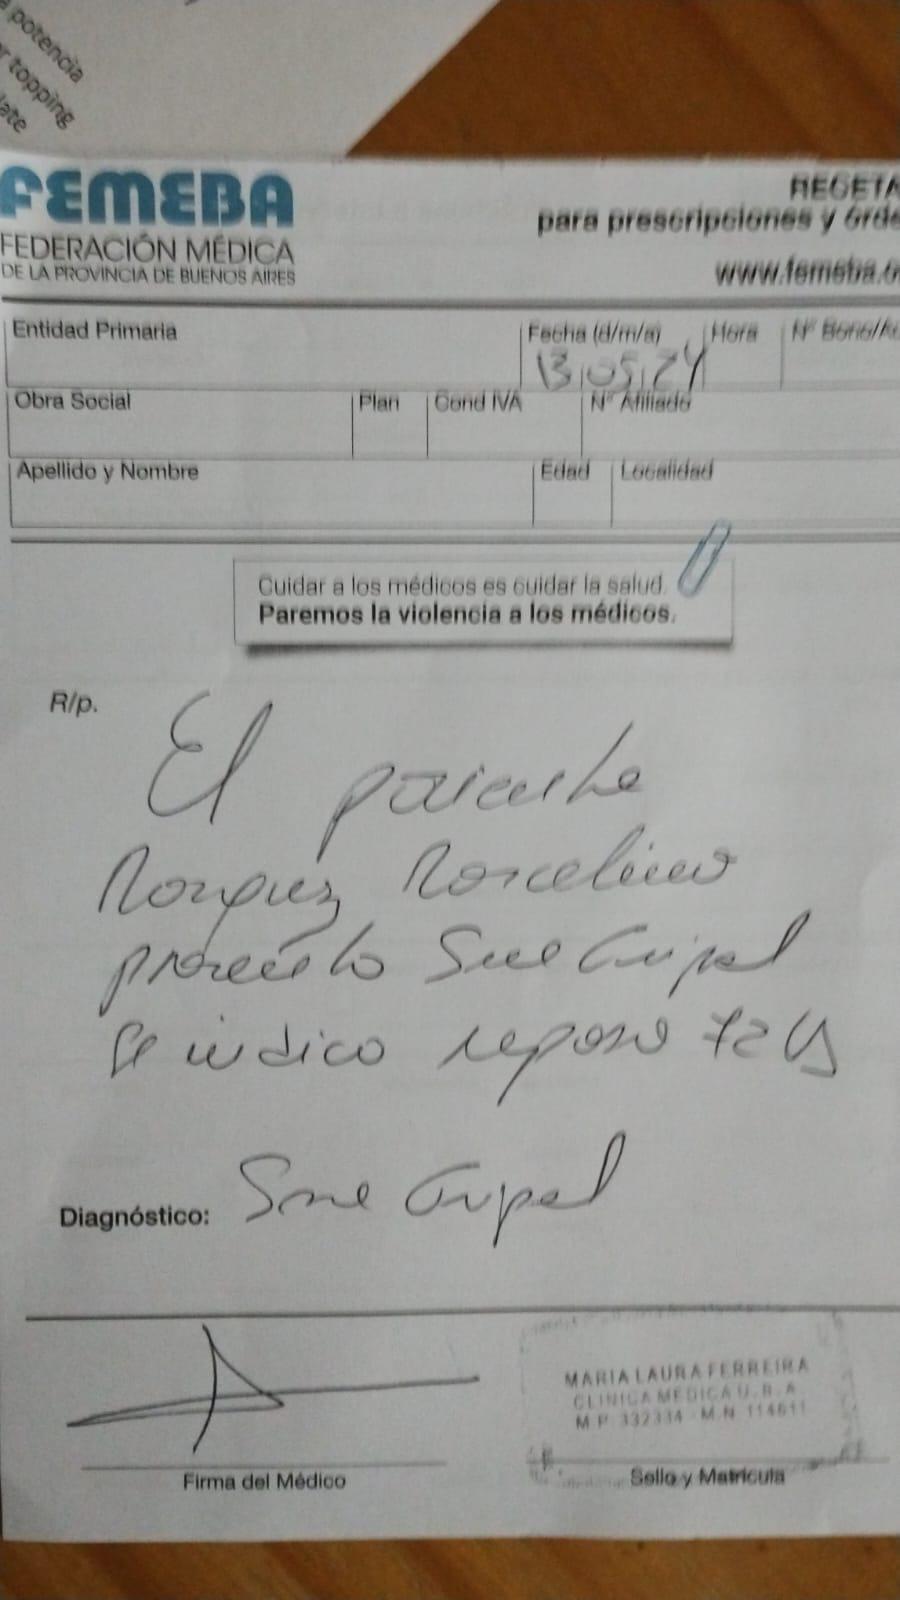 potencia
topping
FEMEBA
FEDERACIÓN MÉDICA
DE LA PROVINCIA DE BUENOS AIRES
RECETA
para prescripciones y órde
www.femeba.o
Entidad Primaria
Fecha (d/m/a) Hora Nº Bono/Au
13 05 24
Obra Social Plan Cond IVA Nº Afiliado
Apellido y Nombre Edad Localidad
Cuidar a los médicos es cuidar la salud.
Paremos la violencia a los médicos.
R/p.
El paciente
Marquez Marcelino
presento Sme Gripal
Se indico reposo 72 hs
Diagnóstico: Sme Gripal
MARIA LAURA FERREIRA
CLINICA MEDICA U.B.A.
M.P. 332334 - M.N. 114611
Firma del Médico
Sello y Matrícula